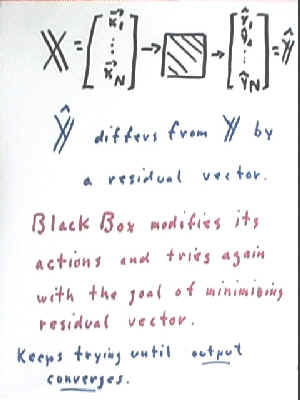 𝕏 = [x⃗₁ ⋮ x⃗N] → → [ŷ₁ ŷ₂ ⋮ ŷN] = 𝕐̂
𝕐̂ differs from 𝕐 by
a residual vector.
Black Box modifies its
actions and tries again
with the goal of minimizing
residual vector.
Keeps trying until output
converges.